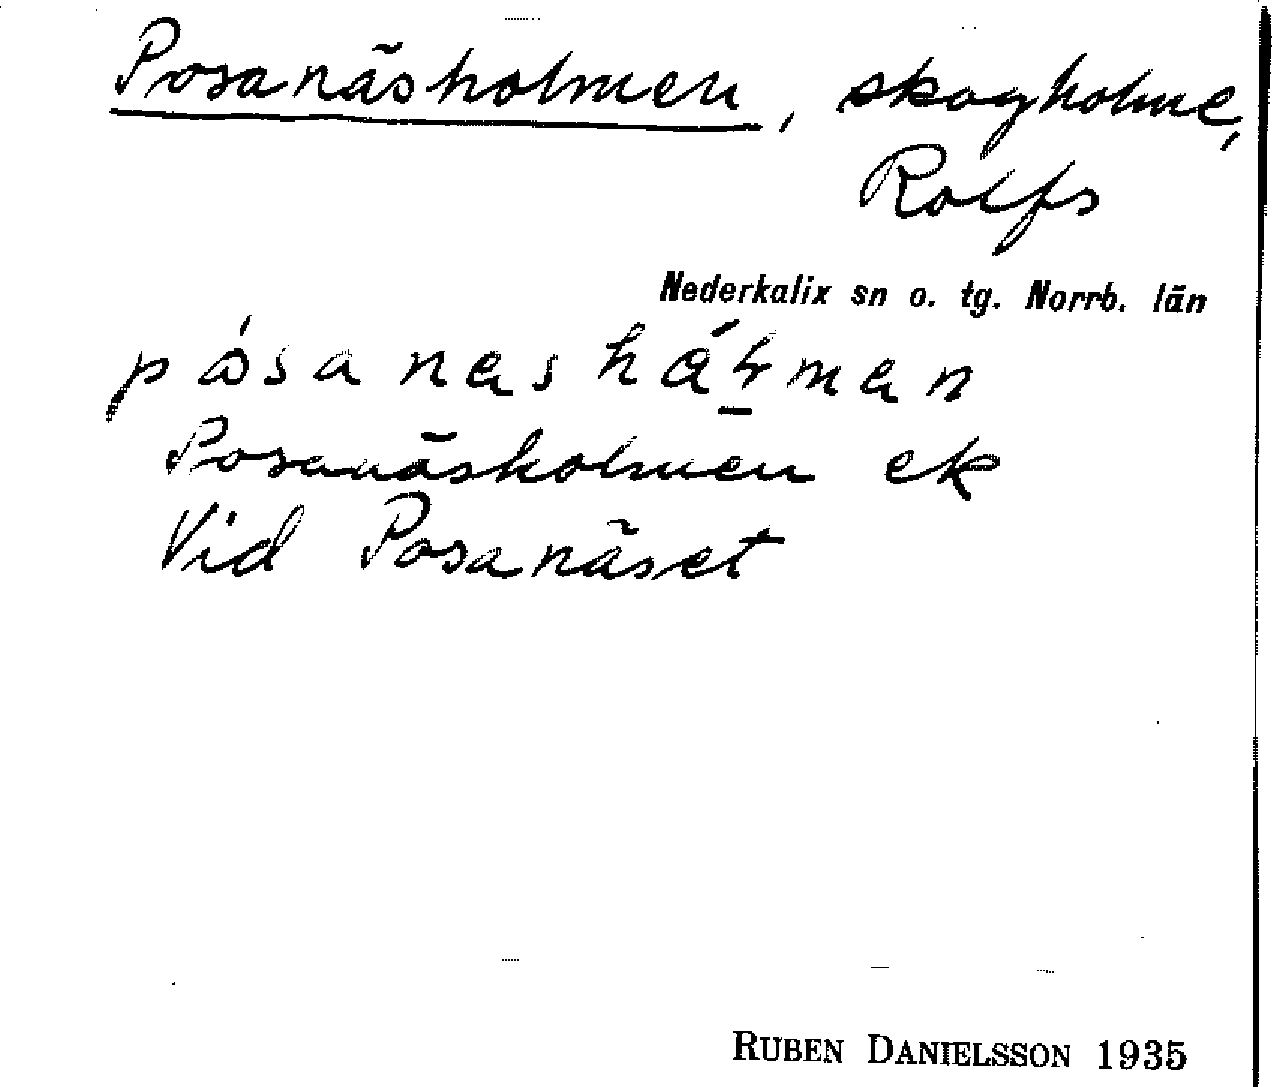 Posanäsholmen, skogholme,
Rolfs
Nederkalix sn o. tg. Norrb. län
Posanäsholmen ek
Vid Posanäset
RUBEN DANIELSSON 1935